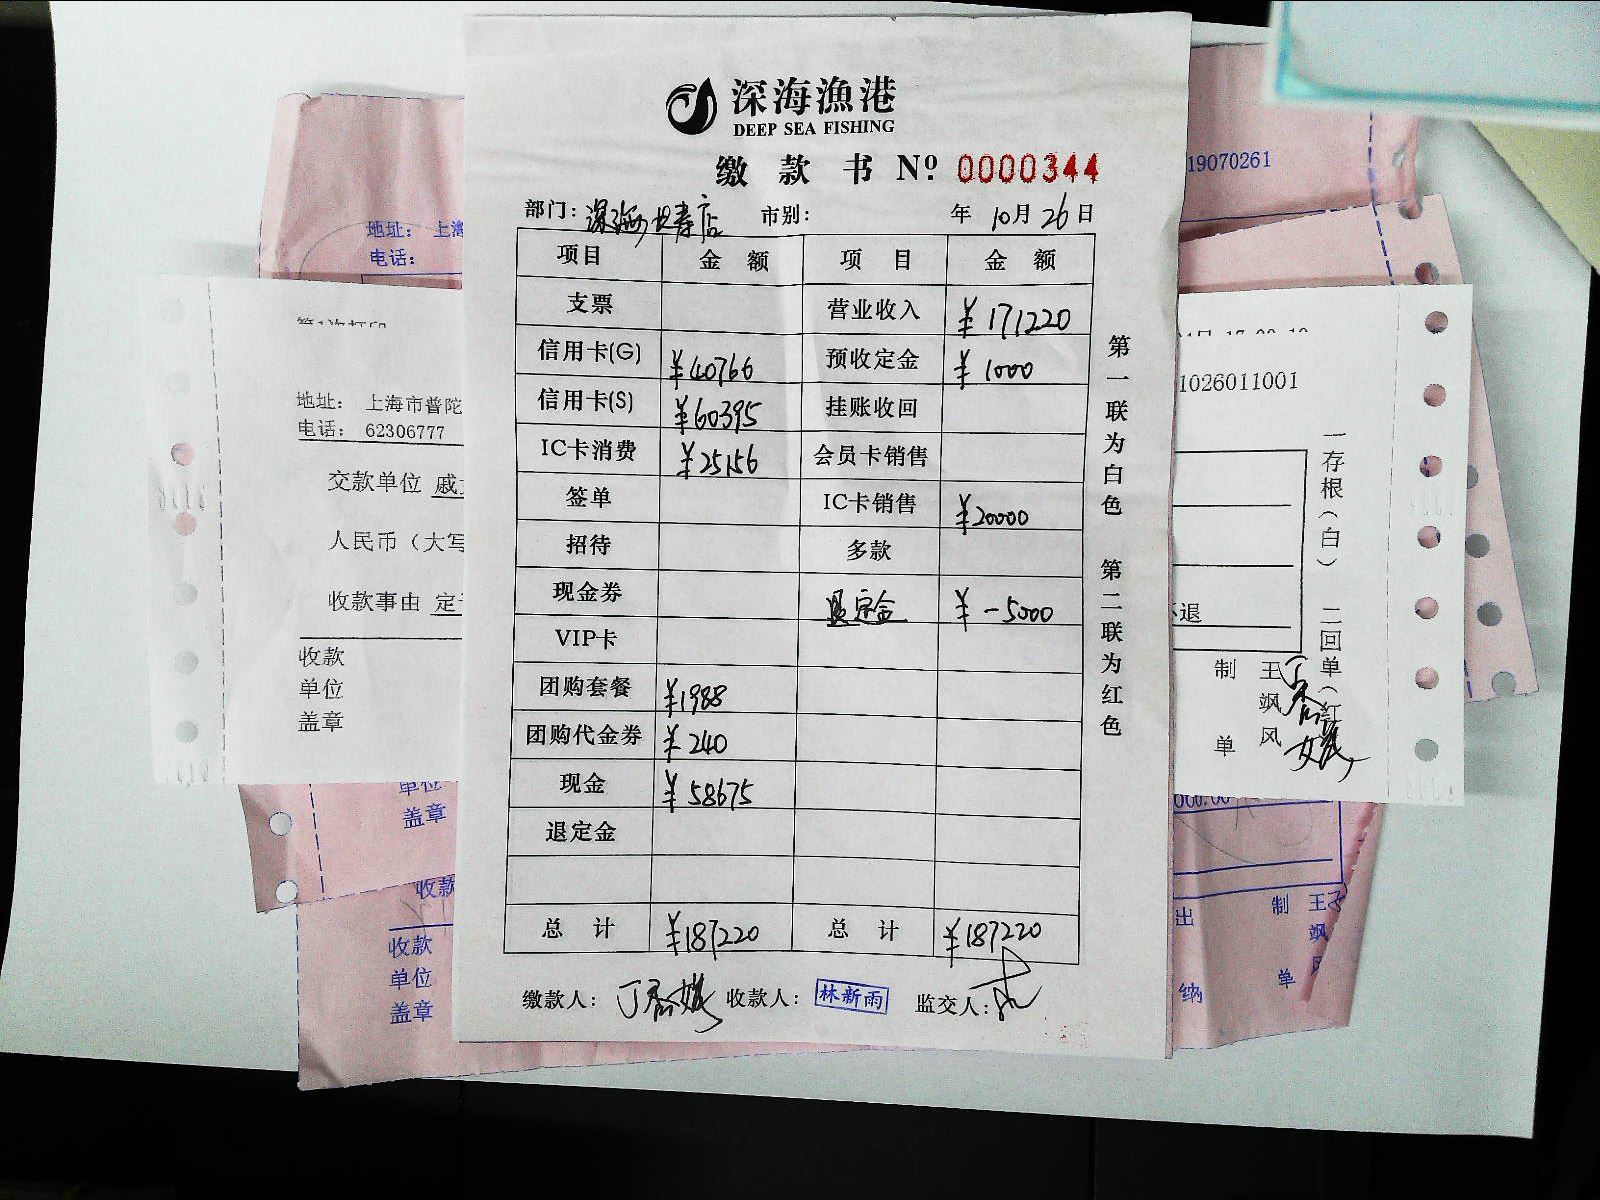 深海漁港
DEEP SEA FISHING
缴 款 书 Nº 0000344
部门: 深海长寿店 市别: 年 10月 26日
项目 金 额 项 目 金 额
支票 营业收入 ¥171220
信用卡(G) ¥40766 预收定金 ¥1000
信用卡(S) ¥60395 挂账收回
IC卡消费 ¥25156 会员卡销售
签单 IC卡销售 ¥20000
招待 多款
现金券 退定金 ¥-5000
VIP卡
团购套餐 ¥1988
团购代金券 ¥240
现金 ¥58675
退定金
总 计 ¥187220 总 计 ¥187220
缴款人: 收款人: 林新雨 监交人:
第一联为白色 第二联为红色
19070261
地址: 上海
电话:
地址: 上海市普陀
电话: 62306777
交款单位 戚
人民币（大写
收款事由 定
收款
单位
盖章
1026011001
退
一存根（白） 二回单（红
制单 王飒风
单位
盖章
收款
收款
单位
盖章
000.00
出纳
制单 王飒风